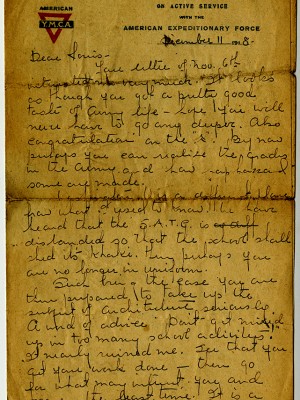 AMERICAN
Y.M.C.A.
ON ACTIVE SERVICE
WITH THE
AMERICAN EXPEDITIONARY FORCE
December 11 1918
Dear Louis:
Your letter of Nov. 6th
very much. It looks
as though you got a pretty good
taste of Army life - hope you will
never have to go any deeper. Also
congratulations on the By now
you can realize the grades
in the Army and how
some are made.
from what I used to know. I have
heard that the S.A.T.C. is
disbanded so that the school shall
shed its khaki. you
are no longer in uniform.
Such being the case you are
then prepared to take up the
subject of architecture seriously.
A word of advice - Don't get mixed
up in too many school activities.
It nearly ruined me. See that you
get your work done - then go
for what may interest you and
the least time. It is a